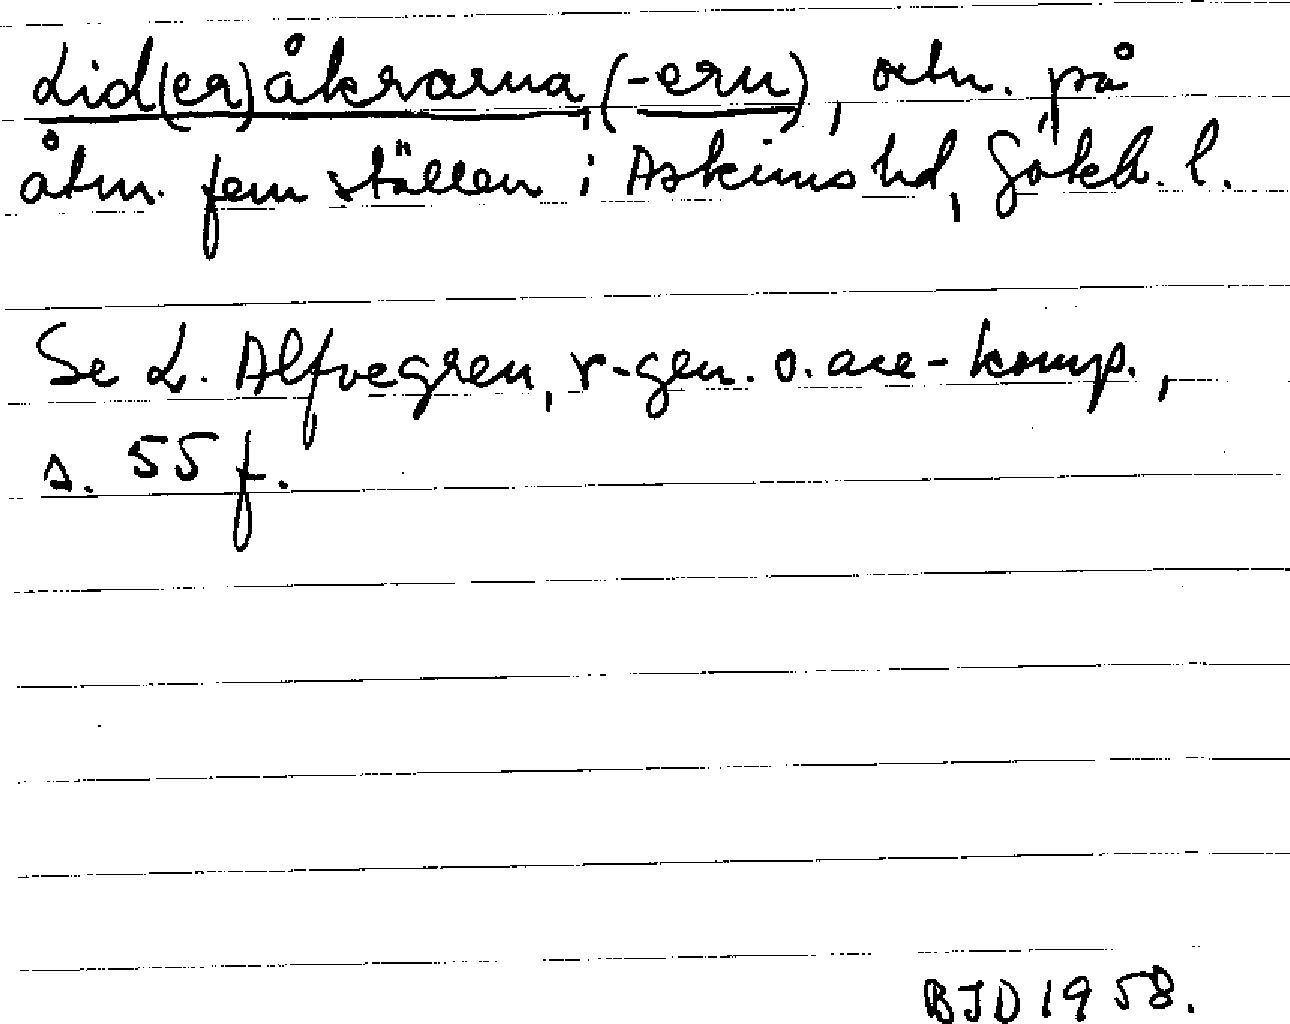 Lid(er)åkrarna, (-ern), ortn. på
åtm. fem ställen i Askims hd, Göteb. l.
Se L. Alfvegren, r-gen. o. ace-komp.,
s. 55 f.
BJD 1958.